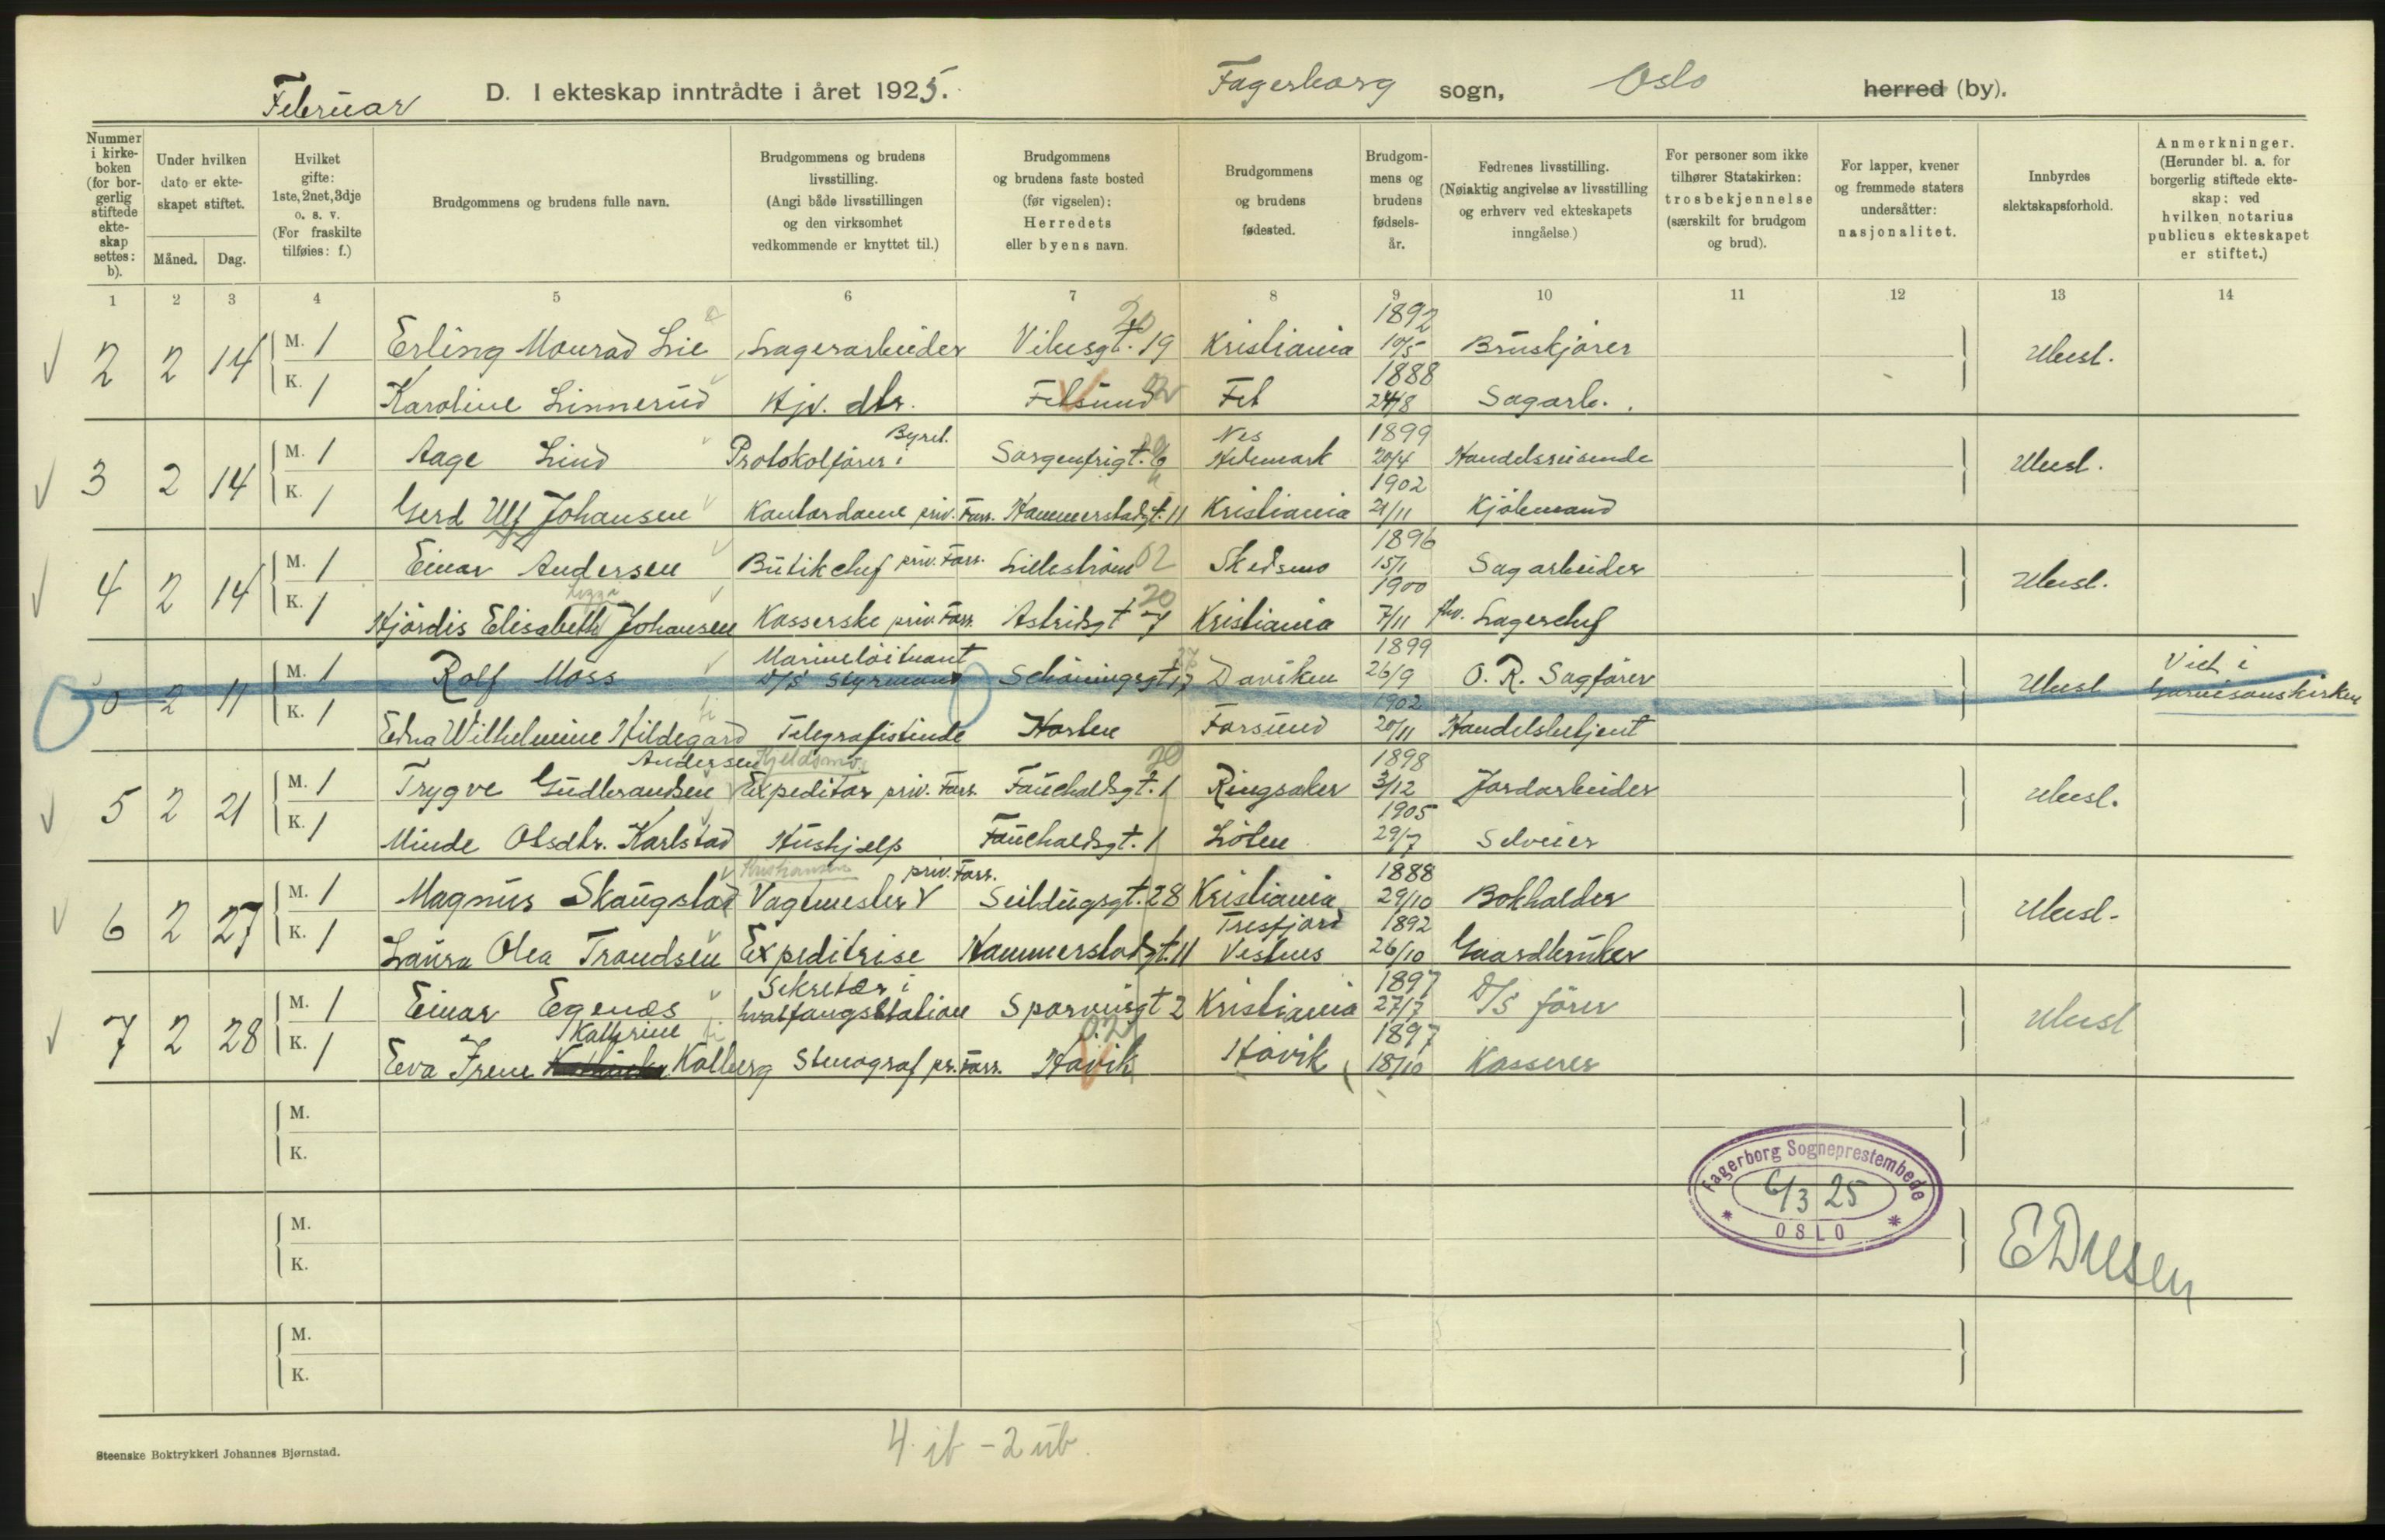 Februar D. I ekteskap inntrådte i året 1925. Fagerborg sogn, Oslo herred (by).
Nummer i kirkeboken (for borgerlig stiftede ekteskap settes: b).
Under hvilken dato er ekteskapet stiftet.
Måned. Dag.
Hvilket gifte: 1ste, 2net, 3dje o. s. v. (For fraskilte tilføies: f.)
Brudgommens og brudens fulle navn.
Brudgommens og brudens livsstilling. (Angi både livsstillingen og den virksomhet vedkommende er knyttet til.)
Brudgommens og brudens faste bosted (før vigselen): Herredets eller byens navn.
Brudgommens og brudens fødested.
Brudgommens og brudens fødselsår.
Fedrenes livsstilling. (Nøiaktig angivelse av livsstilling og erhverv ved ekteskapets inngåelse.)
For personer som ikke tilhører Statskirken: trosbekjennelse (særskilt for brudgom og brud).
For lapper, kvener og fremmede staters undersåtter: nasjonalitet.
Innbyrdes slektskapsforhold.
Anmerkninger. (Herunder bl. a. for borgerlig stiftede ekteskap: ved hvilken notarius publicus ekteskapet er stiftet.)
1 2 3 4 5 6 7 8 9 10 11 12 13 14
2 2 14 M. 1 Erling Monrad Lie Lagerarbeider Vibesgt. 19 20 Kristiania 1892 10/5 Bruskjører Ubesl.
K. 1 Karoline Linnerud Hjv. dtr. Fetsund 02 Fet 1888 24/8 Sagarb.
3 2 14 M. 1 Aage Lind Protokolfører i Byret. Sorgenfrigt. Nes Hedemark 1899 20/4 Handelsreisende Ubesl.
K. 1 Gerd Ulf Johansen Kontordame priv. Forr. Hammerstadgt. 11 Kristiania 1902 21/11 Kjøbmand
4 2 14 M. 1 Einar Andersen Butikchef priv. Forr. Lillestrøm 02 Skedsmo 1896 15/1 Sagarbeider Ubesl.
K. 1 Hjørdis Elisabeth Johansen Kasserske priv. Forr. Astridsgt 7 20 Kristiania 1900 7/11 fhv. Lagerchef
2 11 M. 1 Rolf Moss Marineløitnant D/S Styrmand Schøningsgt 17 Daviken 1899 26/9 O. R. Sagfører Ubesl Viet i Garnisonskirken
K. 1 Edna Wilhelmine Hildegard Andersen Telegrafistinde Horten Farsund 1902 20/11 Handelsbetjent
5 2 21 M. 1 Trygve Gudbrandsen Expeditør priv. Forr. Fauchaldsgt. 1 20 Ringsaker 1898 3/12 Jordarbeider Ubesl.
K. 1 Minde Olsdtr. Karlstad Hushjelp Fauchaldsgt. 1 Løten 1905 29/7 Selveier
6 2 27 M. 1 Magnus Skaugstad Kristiansen Vagtmester priv. Forr. Seildugsgt. 28 Kristiania 1888 29/10 Bokholder Ubesl.
K. 1 Laura Olea Trondsen Expeditrise Hammerstadgt. 11 Tresfjord Vestnes 1892 26/10 Gaardbruker
7 2 28 M. 1 Einar Egenæs Sekretær i hvalfangststation Sporveisgt 2 Kristiania 1897 27/7 D/S fører Ubesl
K. 1 Eva Irene Kathrine Kolberg Stenograf pr. Forr. Høvik Høvik 1897 18/10 Kasserer
M.
K.
M.
K.
M.
K.
Fagerborg Sogneprestembede
6/3 25
OSLO
4 ib - 2 ub.
Steenske Boktrykkeri Johannes Bjørnstad.